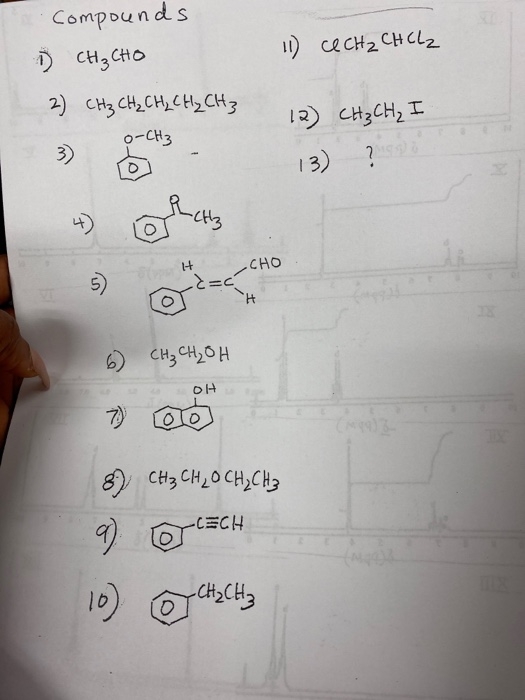 Compounds
1) CH3CHO
2) CH3CH2CH2CH2CH3
3) O-CH3
4) O CH3
5) H C=C CHO H
6) CH3CH2OH
7) OH
8) CH3CH2OCH2CH3
9) C≡CH
10) CH2CH3
11) ClCH2CHCl2
12) CH3CH2I
13) ?